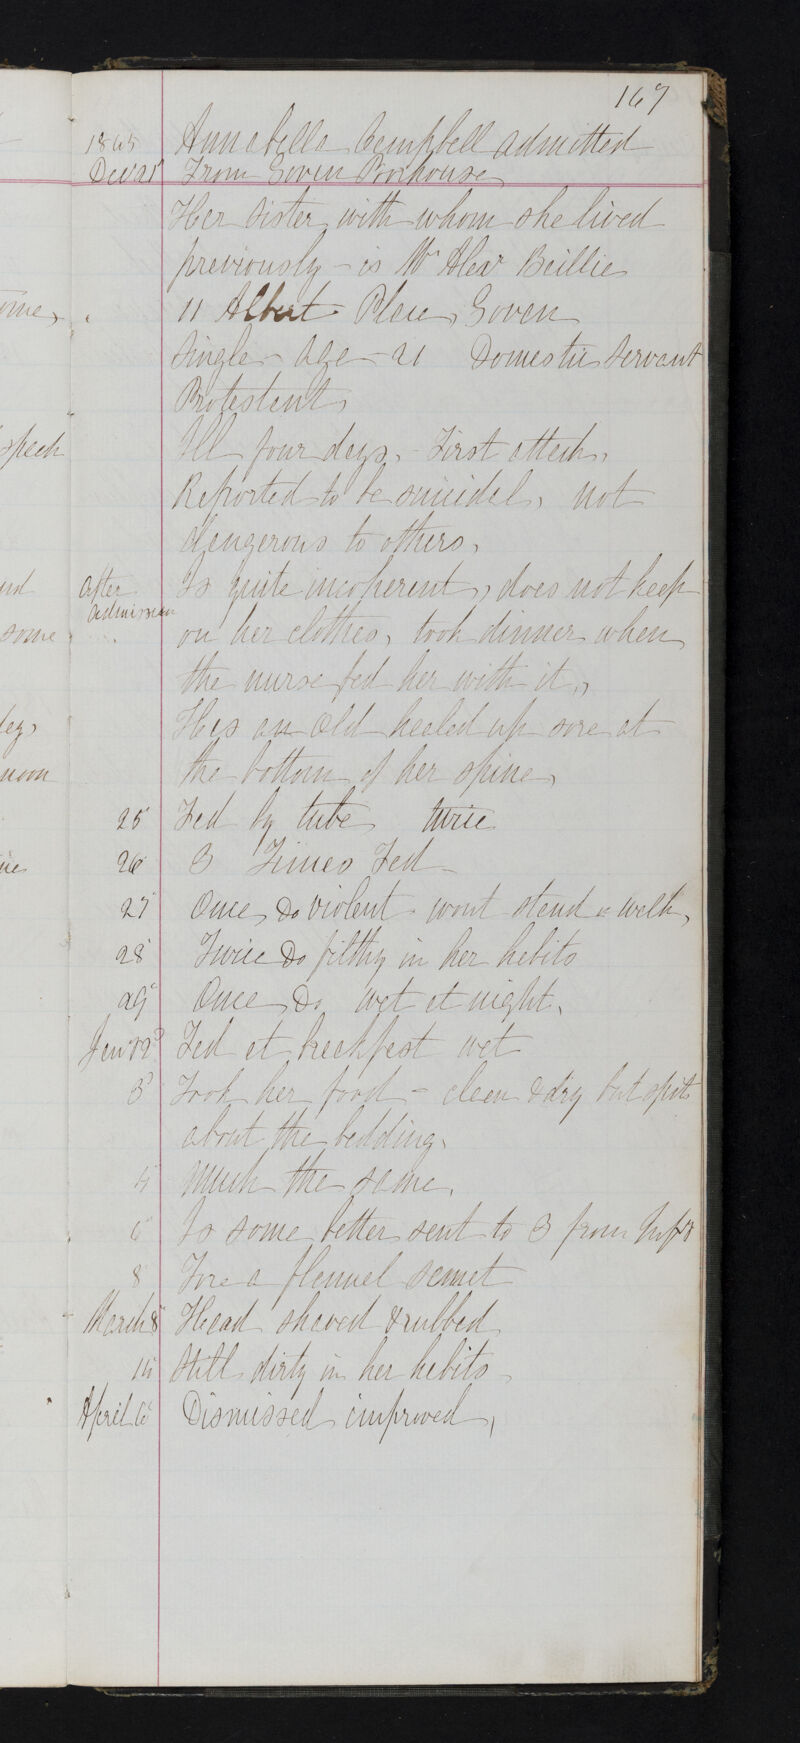 167
1865 Annabella Campbell admitted
Decr 21 From Govan Poorhouse
Her sister with whom she lived
previously - is Mrs Alexr Baillie
11 Albert Place, Govan
single - age - 21 Domestic servant
Protestant
Ill four days, - First attack,
Reported to be suicidal, not
dangerous to others,
After admission Is quite incoherent, does not keep
on her clothes, took dinner when
the nurse fed her with it,
Has an old healed up sore at
the bottom of her spine,
25 Fed by tube twice
26 3 Times Fed
27 Once Do violent wont stand or walk,
28 Twice Do filthy in her habits
29 Once Do wet at night,
Jany 2d Fed at breakfast wet
3d Took her food - clean & dry but spits
about the bedding,
4 Much the same,
6 Is some better sent to 3 from
8 Tore a flannel
March 8 Head shaved & rubbed
15 Still dirty in her habits
April 6 Dismissed improved,
ome,
speak
some
day,
noon